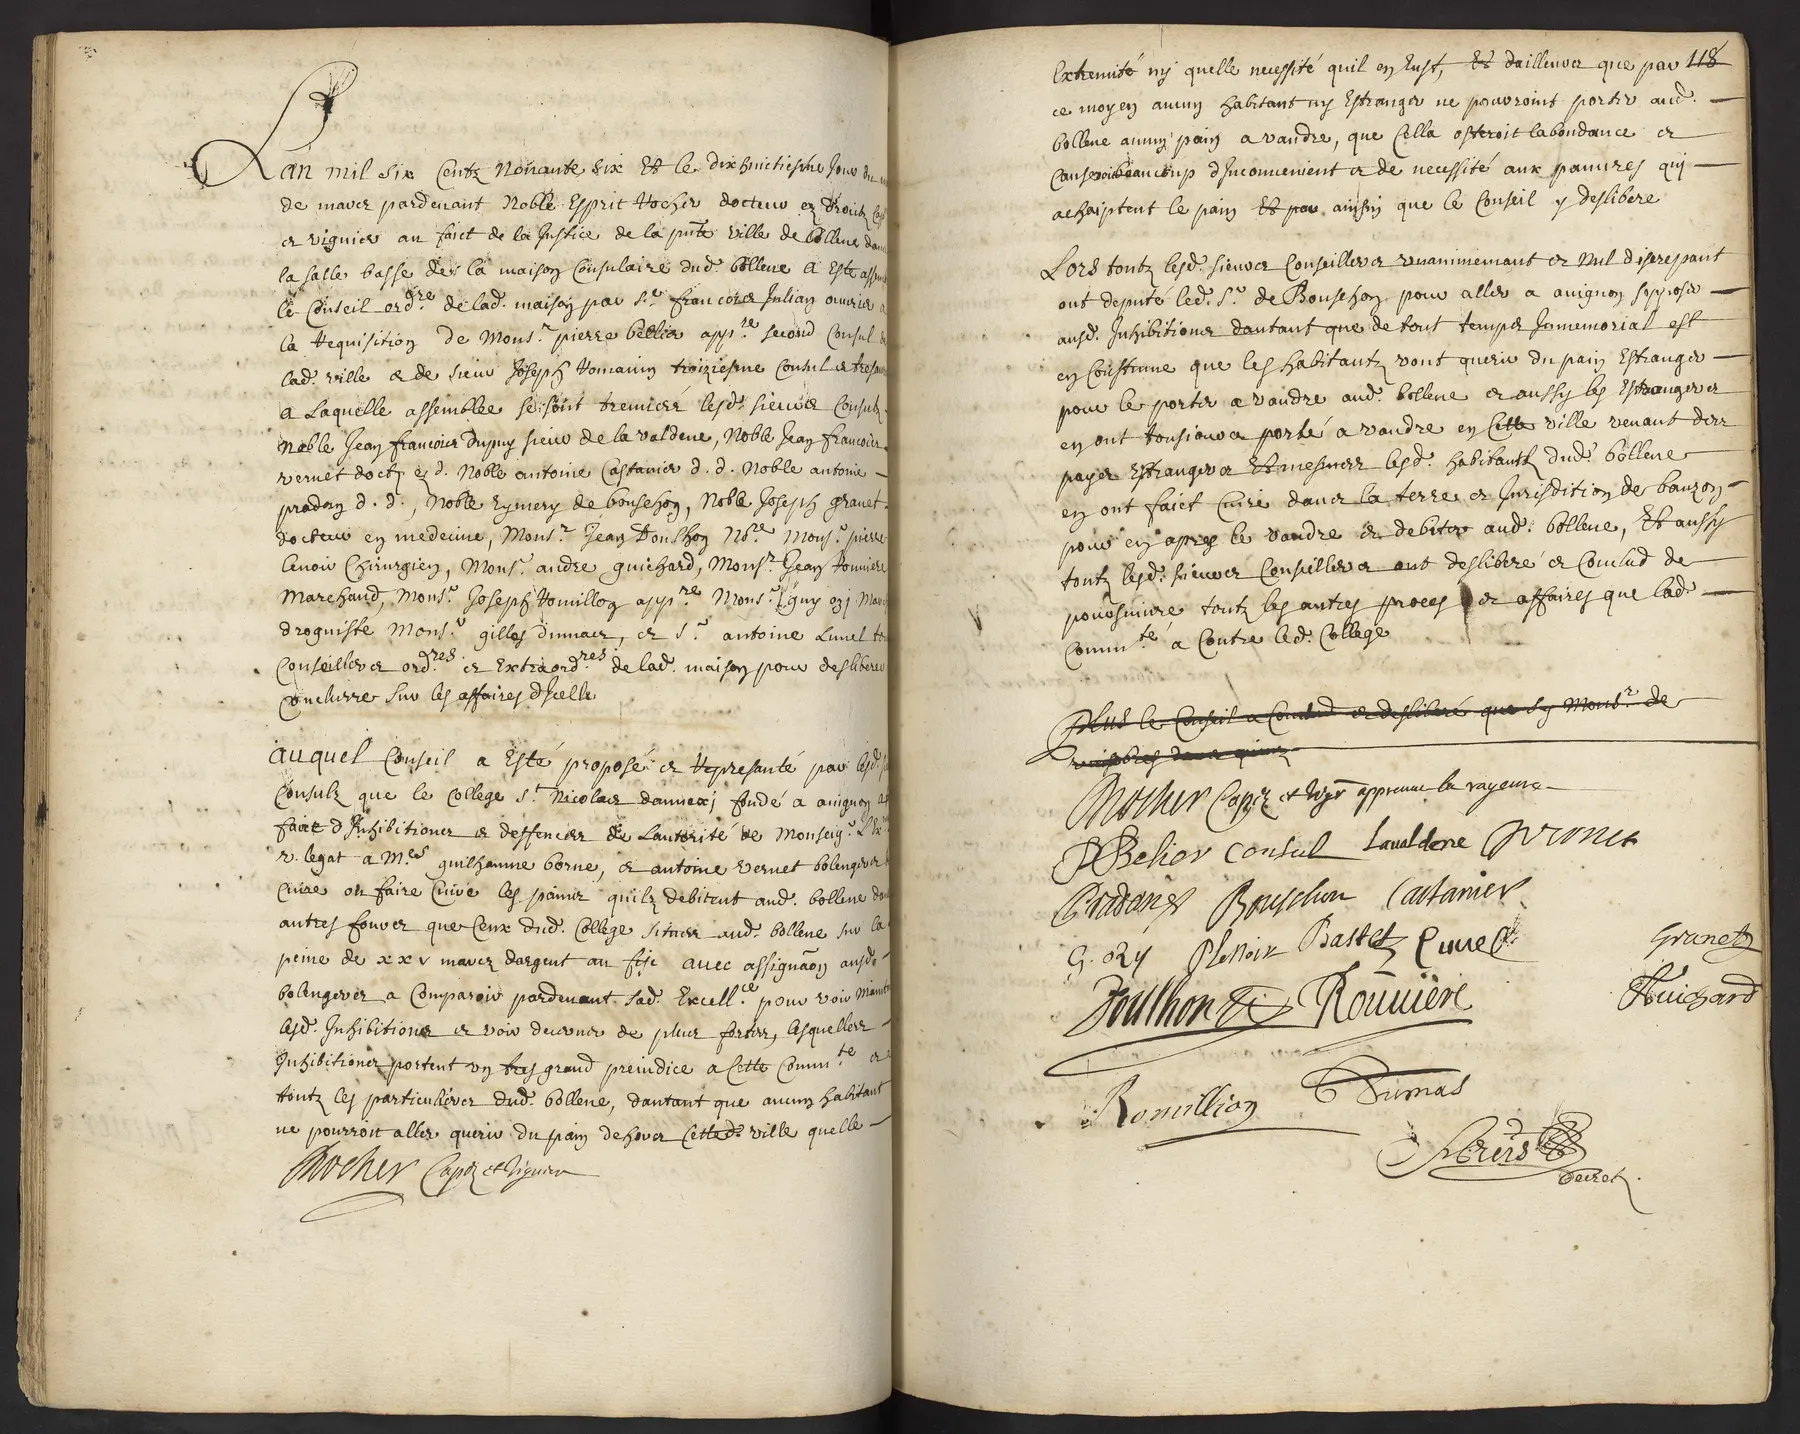 Lan mil six Centz Nonante six Et le dixhuictiesme Jour du
de mars pardevant Noble Esprit Rocher docteur ez droitz Capp
et viguier au faict de la Justice de la pnte ville de bollene dans
la salle basse de la maison Consulaire dud. bollene A Este assem
le Conseil ordre de lad. maison par sr francois Julian ouvrier a
la Requisition de Monsr pierre bellier appre second Consul de
lad. ville et de sieur Joseph Romanin troiziesme Consul et tresor
A Laquelle assemblee se sont treuves lesd. sieurs Consulz
Noble Jean francois Dupuy sieur de lavaldene, Noble Jean francois
vernet doctr e d. Noble antoine Castanier d. d. Noble antoine
pradon d. d., Noble Eymery de bouschon, Noble Joseph granet
docteur en medecine, Monsr Jean Doulhon Nore Monsr pierre
lenoir Chirurgien, Monsr andre guichard, Monsr Jean Rouviere
Marchand, Monsr Joseph Romillon appre Monsr guy ozi Marc
droguiste Monsr gilles dumas, et sr antoine Lunel tous
Conseillers ordres et Extraordres de lad. maison pour deslibere
conclurre sur les affaires dIcelle
auquel Conseil a Esté proposé et Represanté par lesd. srs
Consulz que le College St Nicolas dannexi fondé a avignon a
faict dInhibitions et deffences de Lautorité de Monseigr LEx
v. legat a Mes guilhaume borne, et antoine vernet bolengers
Cuire ou faire Cuire les pains quilz debitent aud. bollene dans
autres fours que Ceux dud. College situes aud. bollene sur la
peine de xxv marcz dargent au fisc avec assignãon ausd.
bolengers a Comparoir pardevant sad. Excellce pour voir Maint
lesd. Inhibitions et voir decerner de plus fortes, lesquelles
Inhibitions portent un tres grand preiudice a Cette Commte et
toutz les particuliers dud. bollene, dautant que aucun habitant
ne pourroit aller querir du pain dehors Cetted. ville quelle
Rocher Capne et viguier
118
Extremité ny quelle necessité quil en Eust, Et dailleurs que par
ce moyen aucun habitant ny Estranger ne pouvroint porter aud.
bollene aucun pain a vandre, que Cella osteroit labondance et
Causeroit beaucoup dInconvenient et de necessité aux pauvres qui
achaiptent le pain Et par ainsin que le Conseil y deslibere
Lors toutz lesd. sieurs Conseillers unanimemant et Nul discrepant
ont deputé led. sr de Bouschon pour aller a avignon sopposer
ausd. Inhibitions dautant que de tout temps Immemorial est
en Coustume que les habitantz vont querir du pain Estranger
pour le porter a vandre aud. bollene et aussy les Estrangers
en ont tousiours porté a vandre en Cette ville venant des
payes Estrangers Et mesmes lesd. habitantz dud. bollene
en ont faict Cuire dans la terre et Jurisdition de bauzon
pour en apres le vandre et debiter aud. bollene, Et aussy
toutz lesd. sieurs Conseillers ont desliberé et Conclud de
poursuivre toutz les autres proces et affaires que lad.
Commte a Contre led. College
Plus le Conseil a Conclud et desliberé que sy Monsr de
Rocher Capne et vigr appreuve la rayeure
PBelier consul Lavaldene Vernet
Pradons Bouschon Castanier
G. ozy PLenoir Bastet Lunel Granet
Doulhon Rouuiere Guichard
Romillion GDumas
secret.